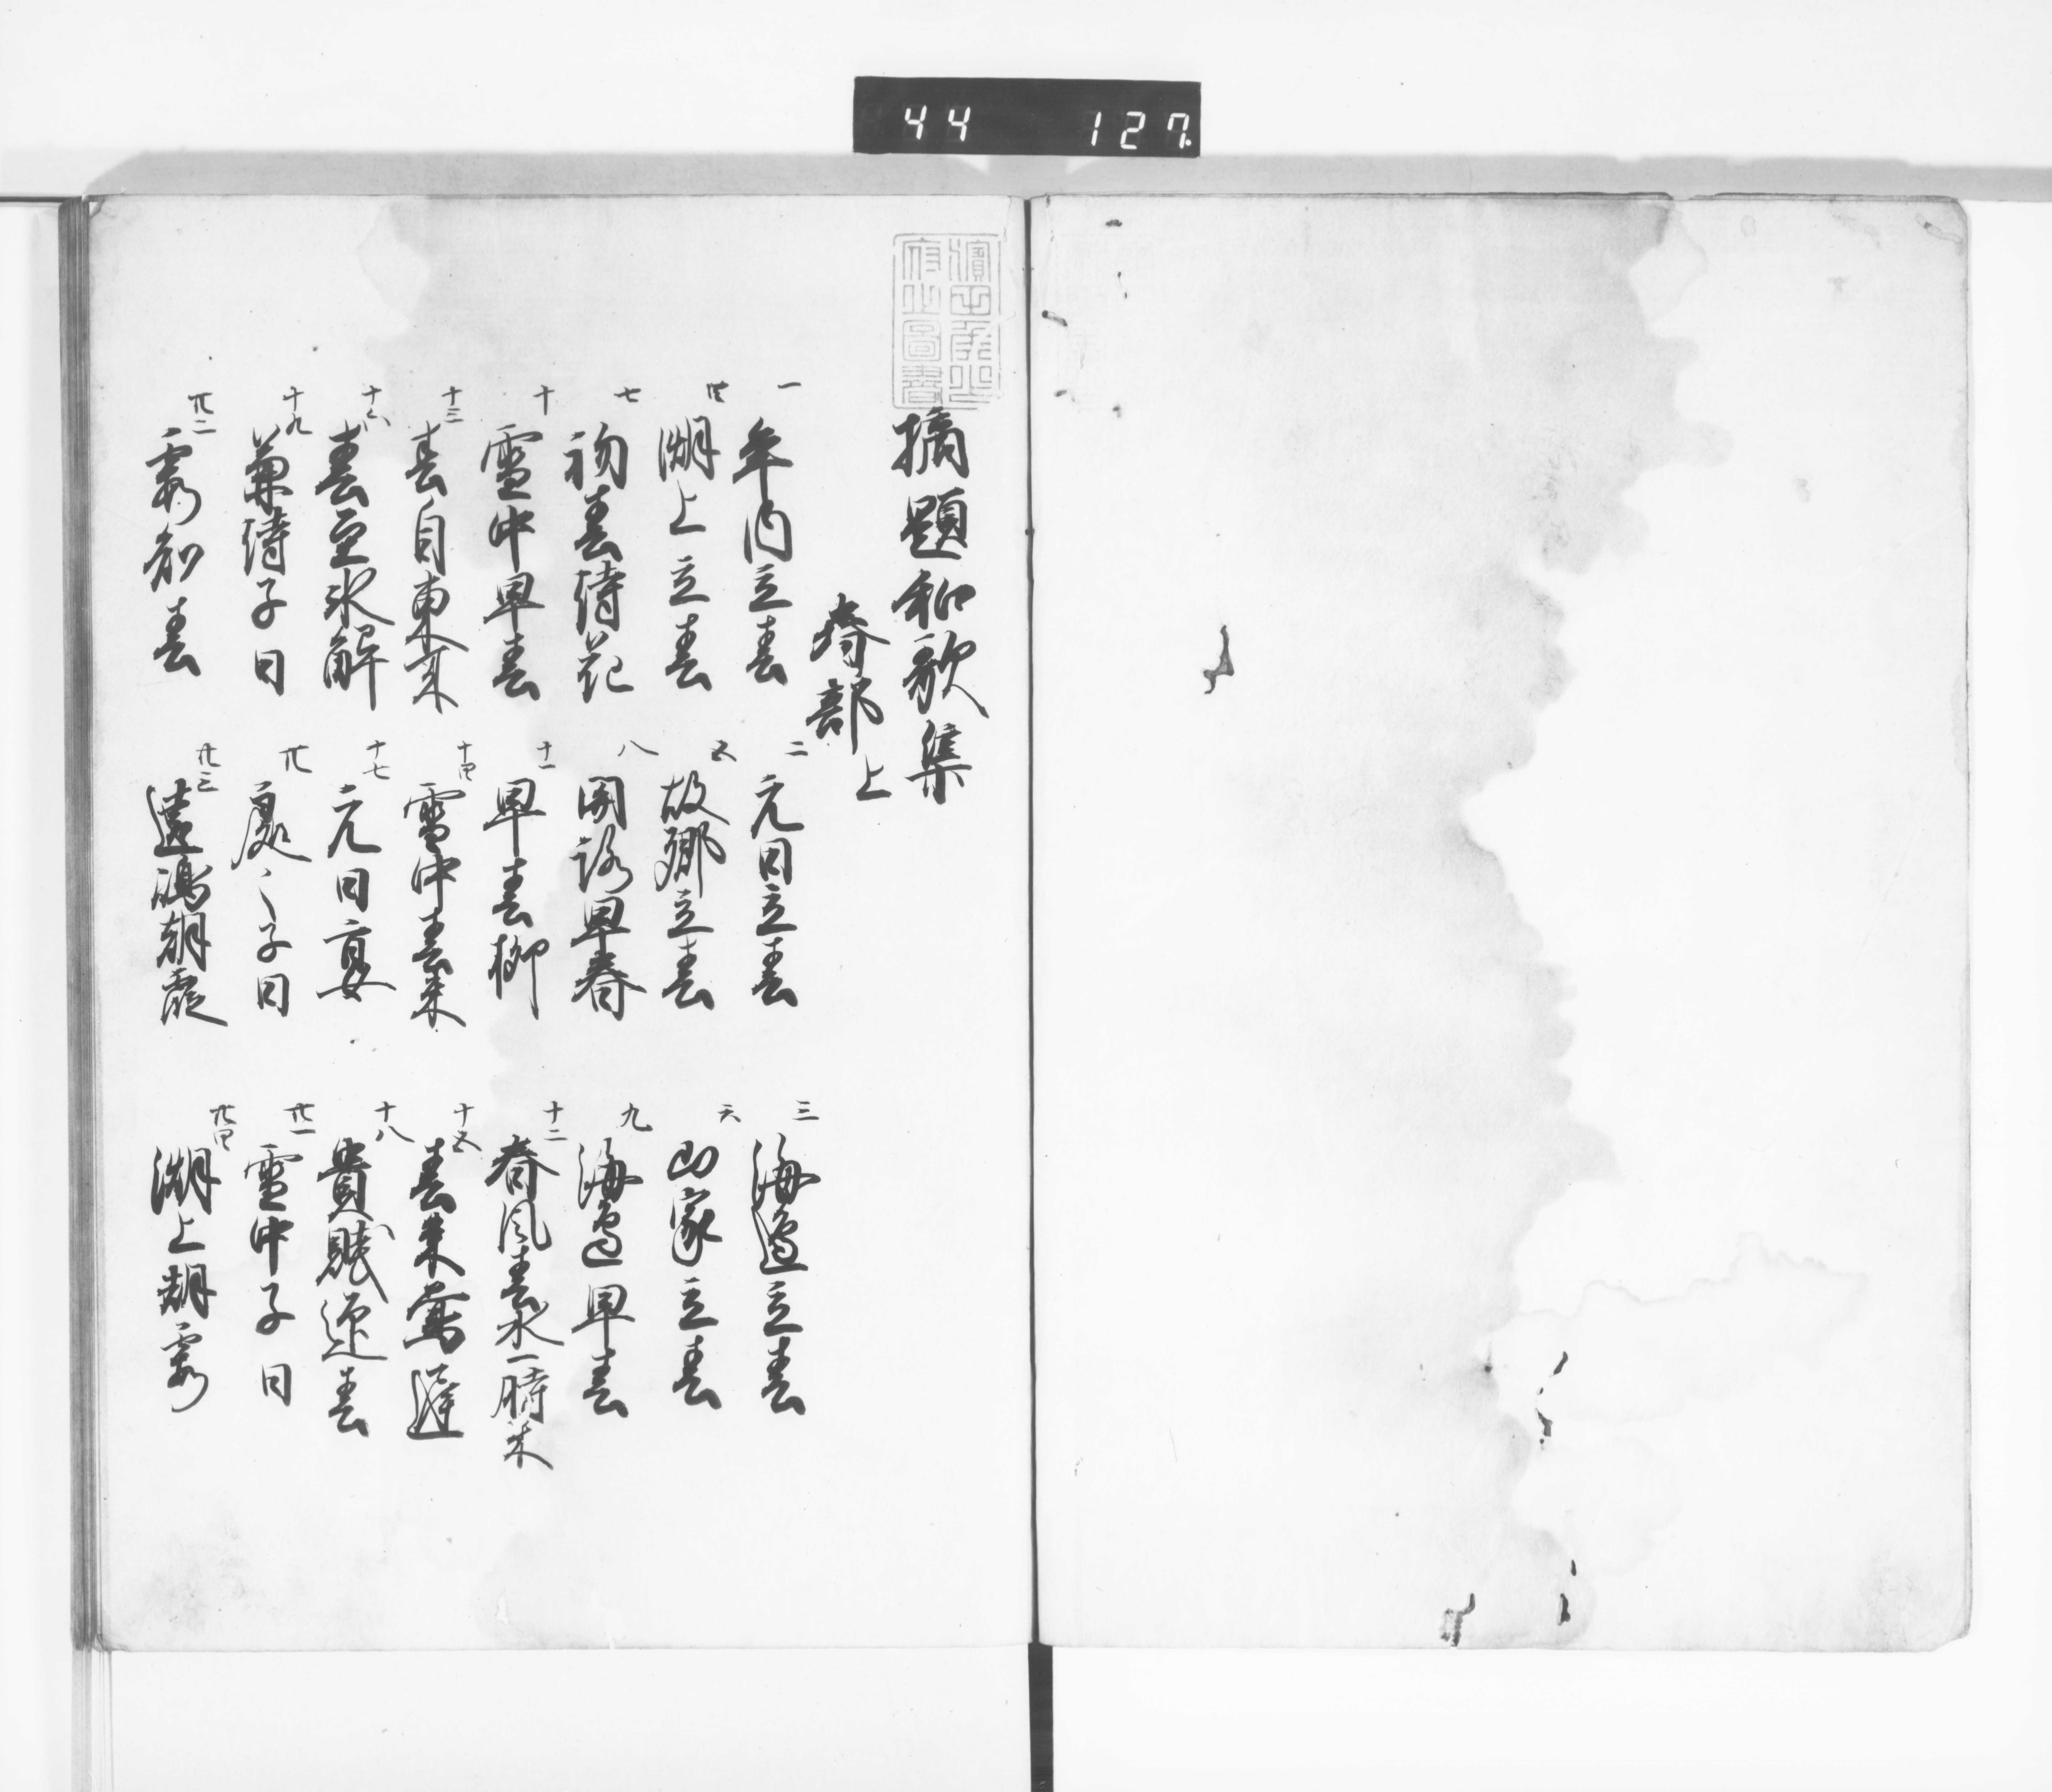 44 127
摘題和歌集
春部上
一 年内立春 二 元日立春 三 海邊立春
四 湖上立春 五 故郷立春 六 山家立春
七 初春待花 八 関路早春 九 海邊早春
十 雪中早春 十一 早春柳 十二 春風春水一時来
十三 春自東来 十四 雪中春来 十五 春来鶯遅
十六 春至氷解 十七 元日宴 十八 貴賎迎春
十九 兼待子日 廿 處々子日 廿一 雪中子日
廿二 霞知春 廿三 遠嶋朝霞 廿四 湖上朝霞